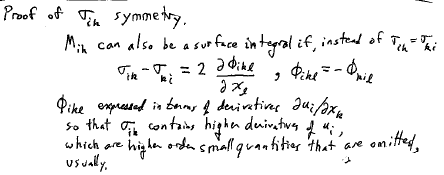 Proof of σ_ik symmetry.
M_ik can also be a surface integral if, instead of σ_ik = σ_ki
σ_ik - σ_ki = 2 ∂φ_ikl / ∂x_l , φ_ikl = -φ_kil
φ_ikl expressed in terms of derivatives ∂u_i/∂x_k
so that σ_ik contains higher derivatives of u_i,
which are higher order small quantities that are omitted,
usually.